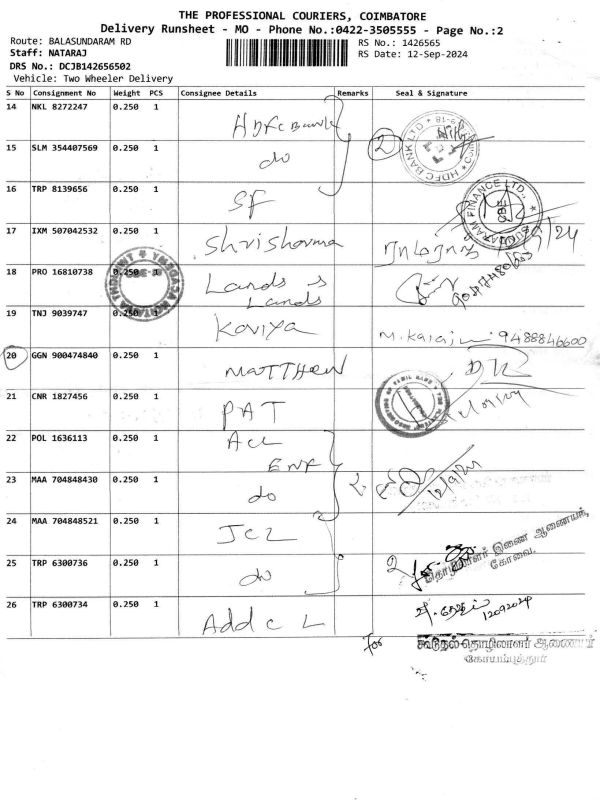 THE PROFESSIONAL COURIERS, COIMBATORE
Delivery Runsheet - MO - Phone No.:0422-3505555 - Page No.:2
Route: BALASUNDARAM RD
RS No.: 1426565
Staff: NATARAJ
RS Date: 12-Sep-2024
DRS No.: DCJB142656502
Vehicle: Two Wheeler Delivery
S No Consignment No Weight PCS Consignee Details Remarks Seal & Signature
14 NKL 8272247 0.250 1 HDFC Bank
15 SLM 354407569 0.250 1 do 2
HDFC BANK LTD
16 TRP 8139656 0.250 1 SF
SUNDARAM FINANCE LTD., CBE
17 IXM 507042532 0.250 1 Shrisharma
18 PRO 16810738 0.250 1 Lands is
Lands
19 TNJ 9039747 0.250 1 Kaviya 9488846600
20 GGN 900474840 0.250 1 MATTHEW
21 CNR 1827456 0.250 1 PAT
22 POL 1636113 0.250 1 ACL
ENF
23 MAA 704848430 0.250 1 do 2. 12/9/24
24 MAA 704848521 0.250 1 JCL
25 TRP 6300736 0.250 1 do 2
தொழிலாளர் இணை ஆணையர்,
கோவை.
26 TRP 6300734 0.250 1 Add C L 12092024
For கூடுதல் தொழிலாளர் ஆணையர்
கோயம்புத்தூர்